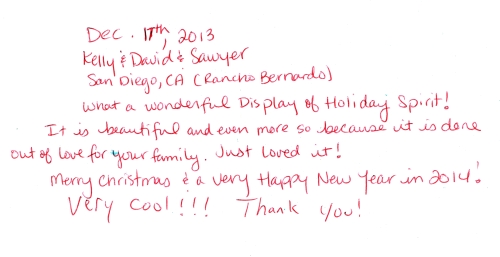 Dec. 17th, 2013
Kelly & David & Sawyer
San Diego, CA (Rancho Bernardo)
What a wonderful Display of Holiday Spirit!
It is beautiful and even more so because it is done
out of love for your family. Just loved it!
Merry Christmas & a very Happy New Year in 2014!
Very Cool!!! Thank you!